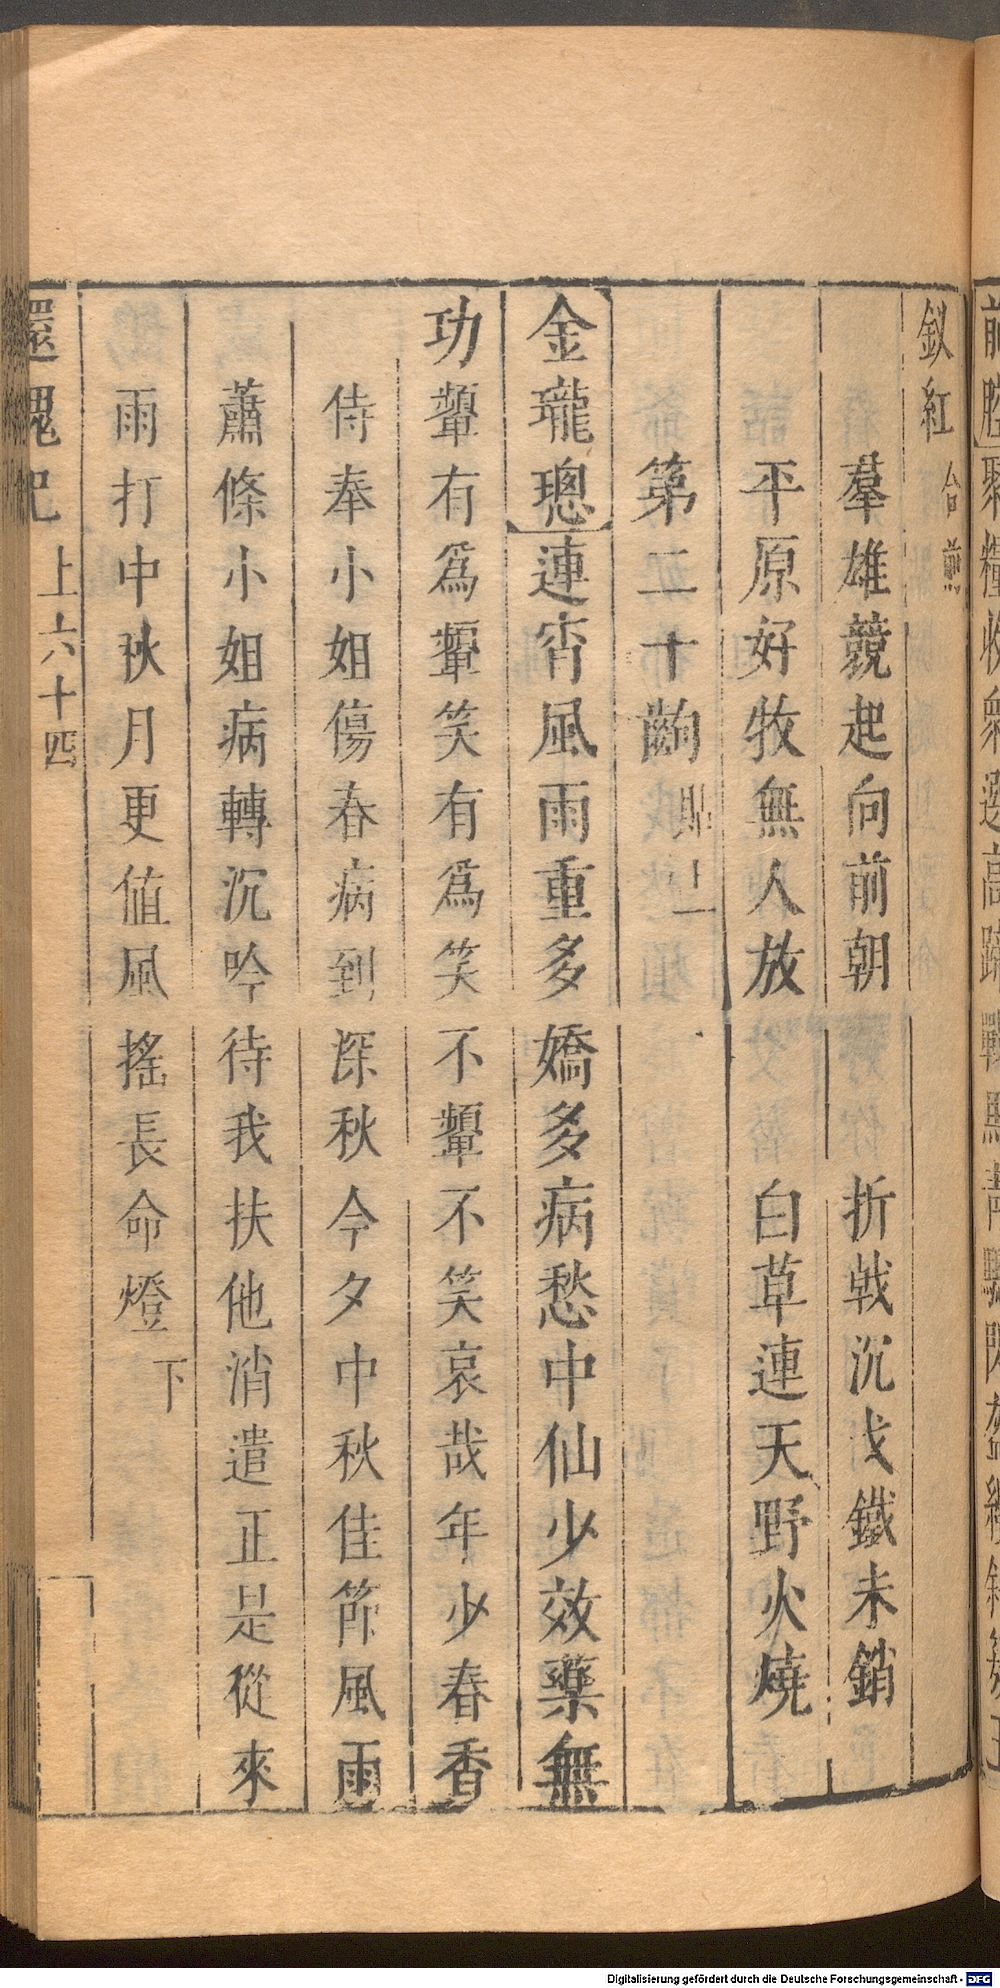 釵紅 合前
羣雄競起向前朝 折戟沉戈鐵未銷
平原好牧無人放 白草連天野火燒
第二十齣
金瓏璁 連宵風雨重多嬌多病愁中仙少效藥無
功顰有爲顰笑有爲笑不顰不笑哀哉年少春香
侍奉小姐傷春病到深秋今夕中秋佳節風雨
蕭條小姐病轉沉吟待我扶他消遣正是從來
雨打中秋月更值風搖長命燈 下
還魂記 上六十四
Digitalisierung gefördert durch die Deutsche Forschungsgemeinschaft - DFG